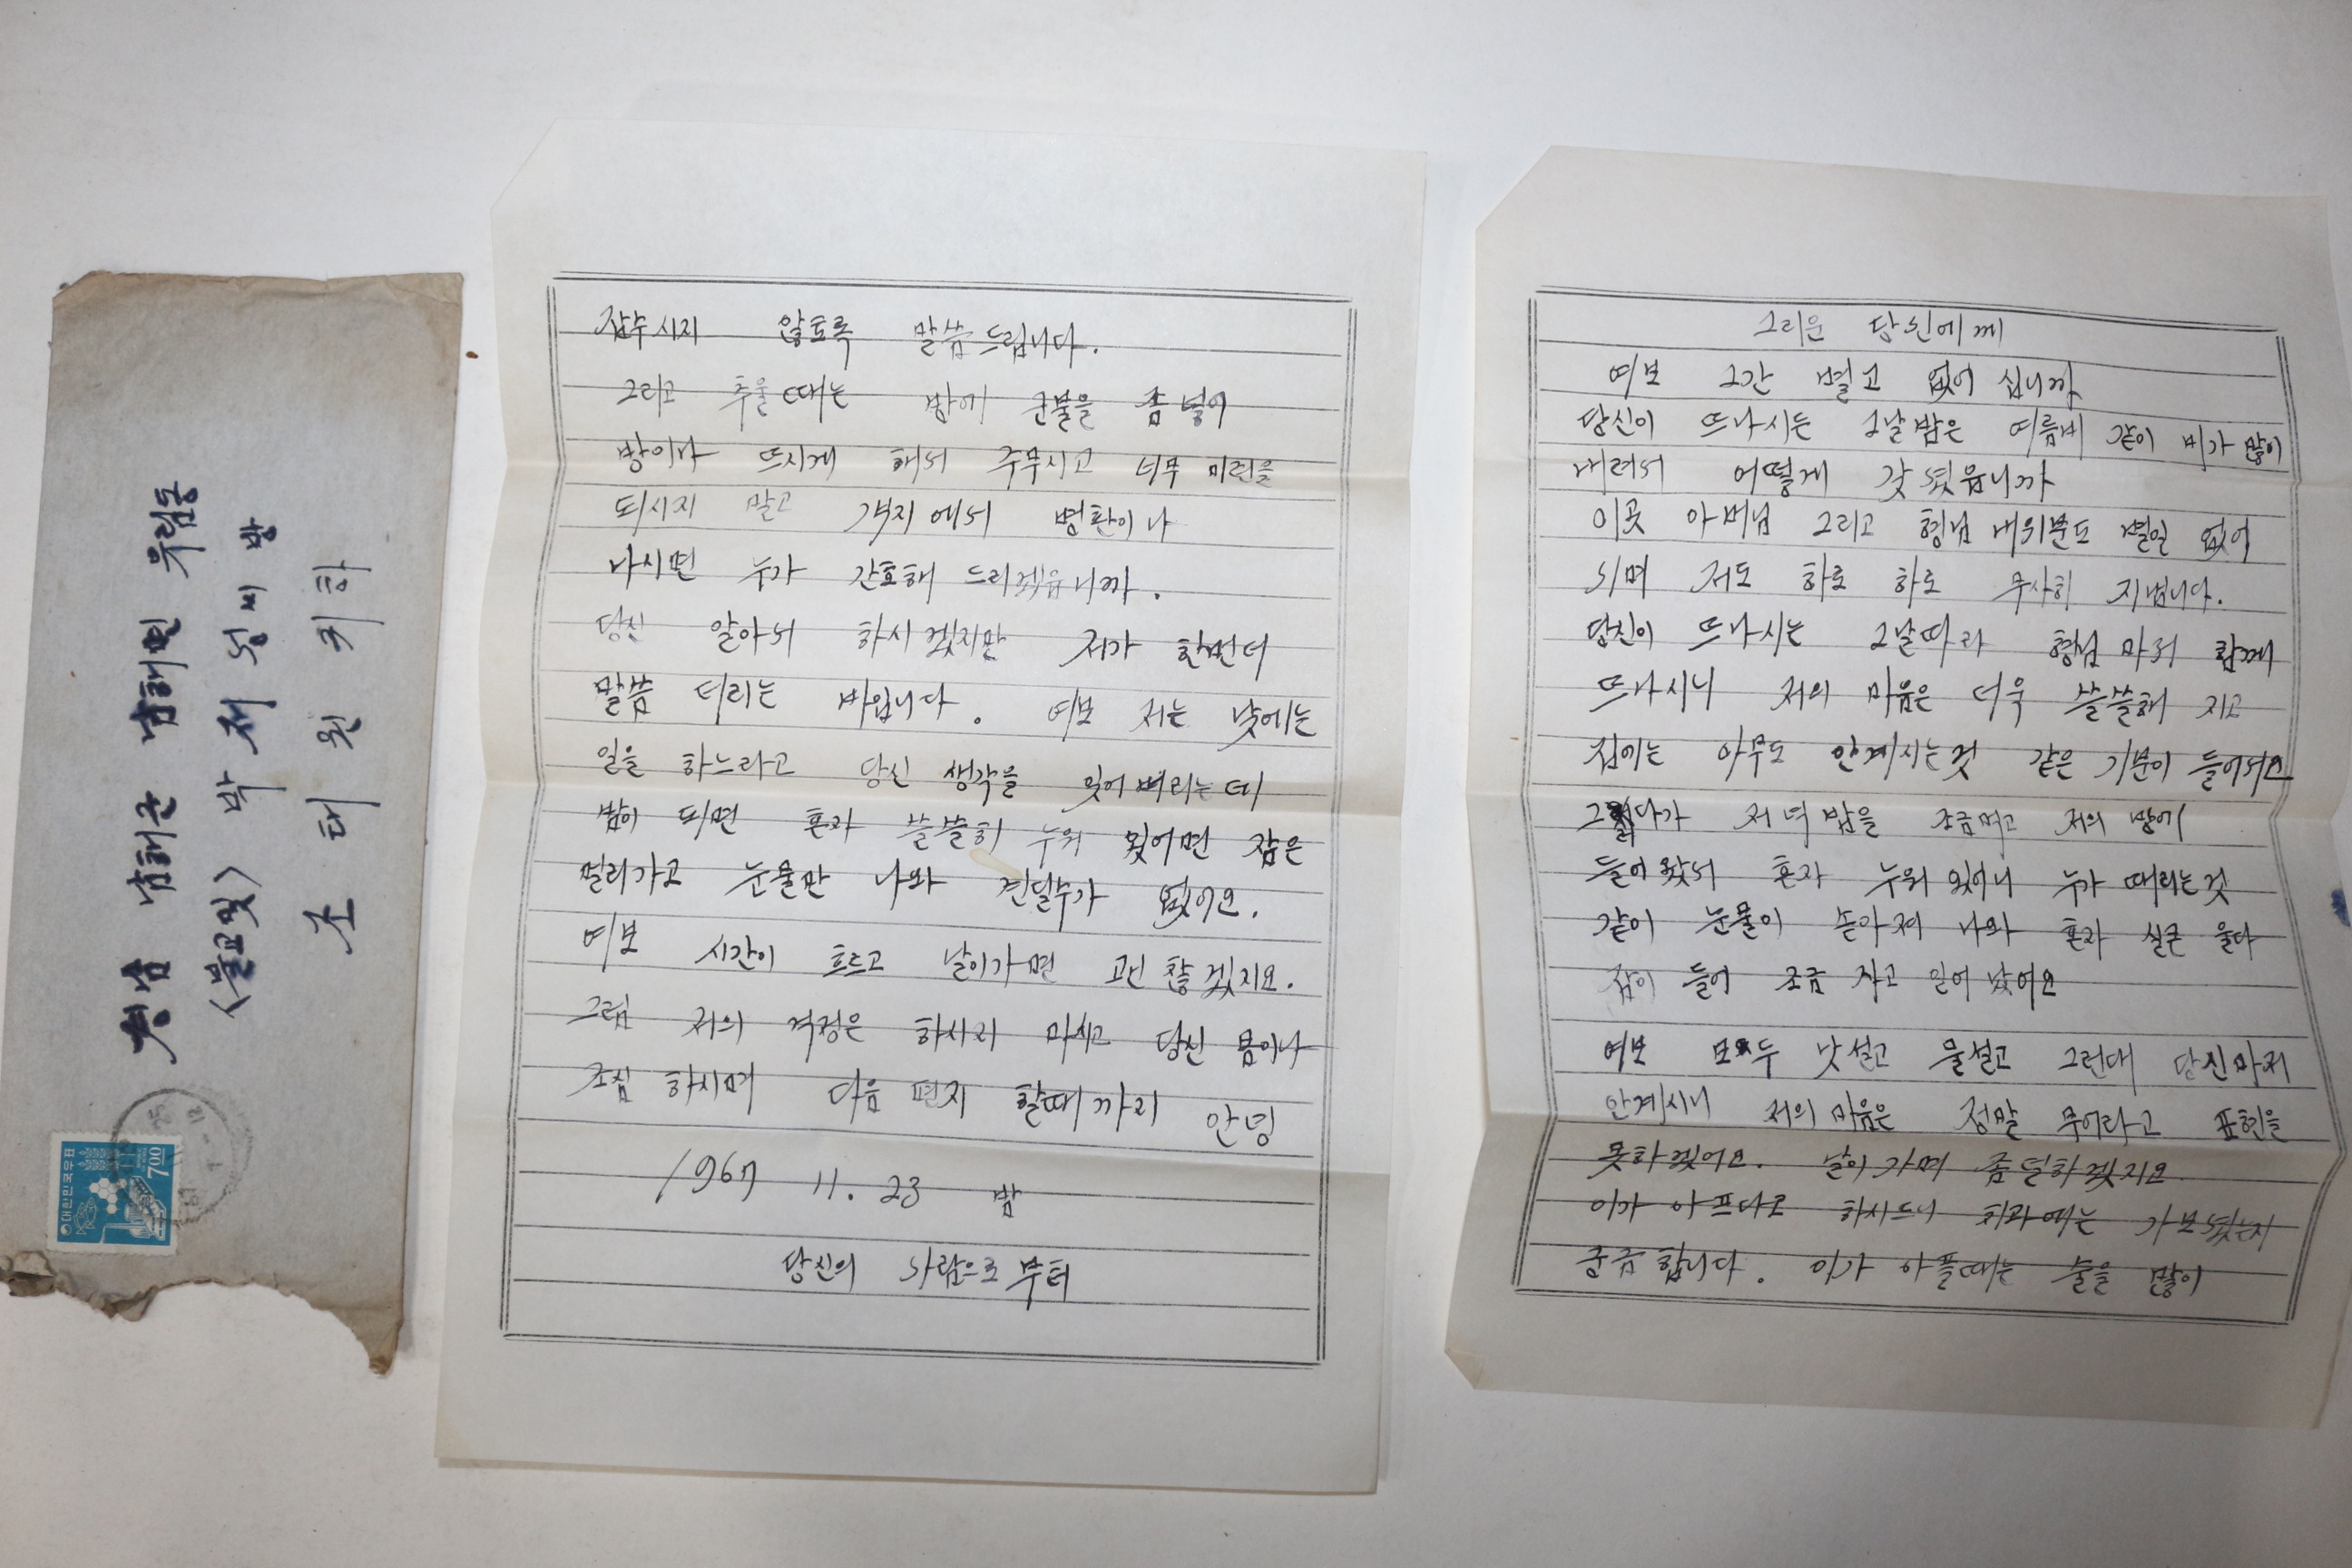 경남 남해군 남해면 유림동
<불교 및> 박재성씨 방
조태원 귀하
대한민국우표
7.00
그리운 당신에께
여보 그간 별고 없어 십니까
당신이 뜨나시든 그날밤은 여름비 같이 비가 많이
내려서 어떻게 갓셨읍니까
이곳 아버님 그리고 형님 내위분도 별일 없어
시며 저도 하로 하로 무사히 지냅니다.
당신이 뜨나시는 그날따라 형님 마저 함께
뜨나시니 저의 마음은 더욱 쓸쓸해 지고
집에는 아무도 안계시는것 같은 기분이 들어서요
그러다가 저녁 밥을 조금먹고 저의 방에
들어 왔서 혼자 누워 있어니 누가 때리는것
같이 눈물이 솓아져 나와 혼자 실큰 울다
잠이 들어 조금 자고 일어 났어요
여보 모두 낯설고 물설고 그런대 당신마저
안계시니 저의 마음은 정말 무어라고 표현을
못하겠어요. 날이 가며 좀 덜하겠지요
이가 아프다고 하시드니 치과에는 가보셨는지
궁금합니다. 이가 아플때는 술을 많이
잡수시지 않토록 말씀드립니다.
그리고 추울때는 방에 군불을 좀 넣어
방이나 뜨시게 해서 주무시고 너무 미련을
되시지 말고 객지에서 병환이나
나시면 누가 간호해 드리겠읍니까.
당신 알아서 하시겠지만 저가 한번더
말씀 더리는 바입니다. 여보 저는 낮에는
일을 하느라고 당신 생각을 잊어버리는데
밤이 되면 혼자 쓸쓸히 누워 있어면 잠은
멀리가고 눈물만 나와 견딜수가 없어요.
여보 시간이 흐르고 날이가면 괜찮겠지요.
그럼 저의 걱정은 하시지 마시고 당신 몸이나
조심 하시며 다음 편지 할때까지 안녕
1967 11. 23 밤
당신의 사람으로 부터